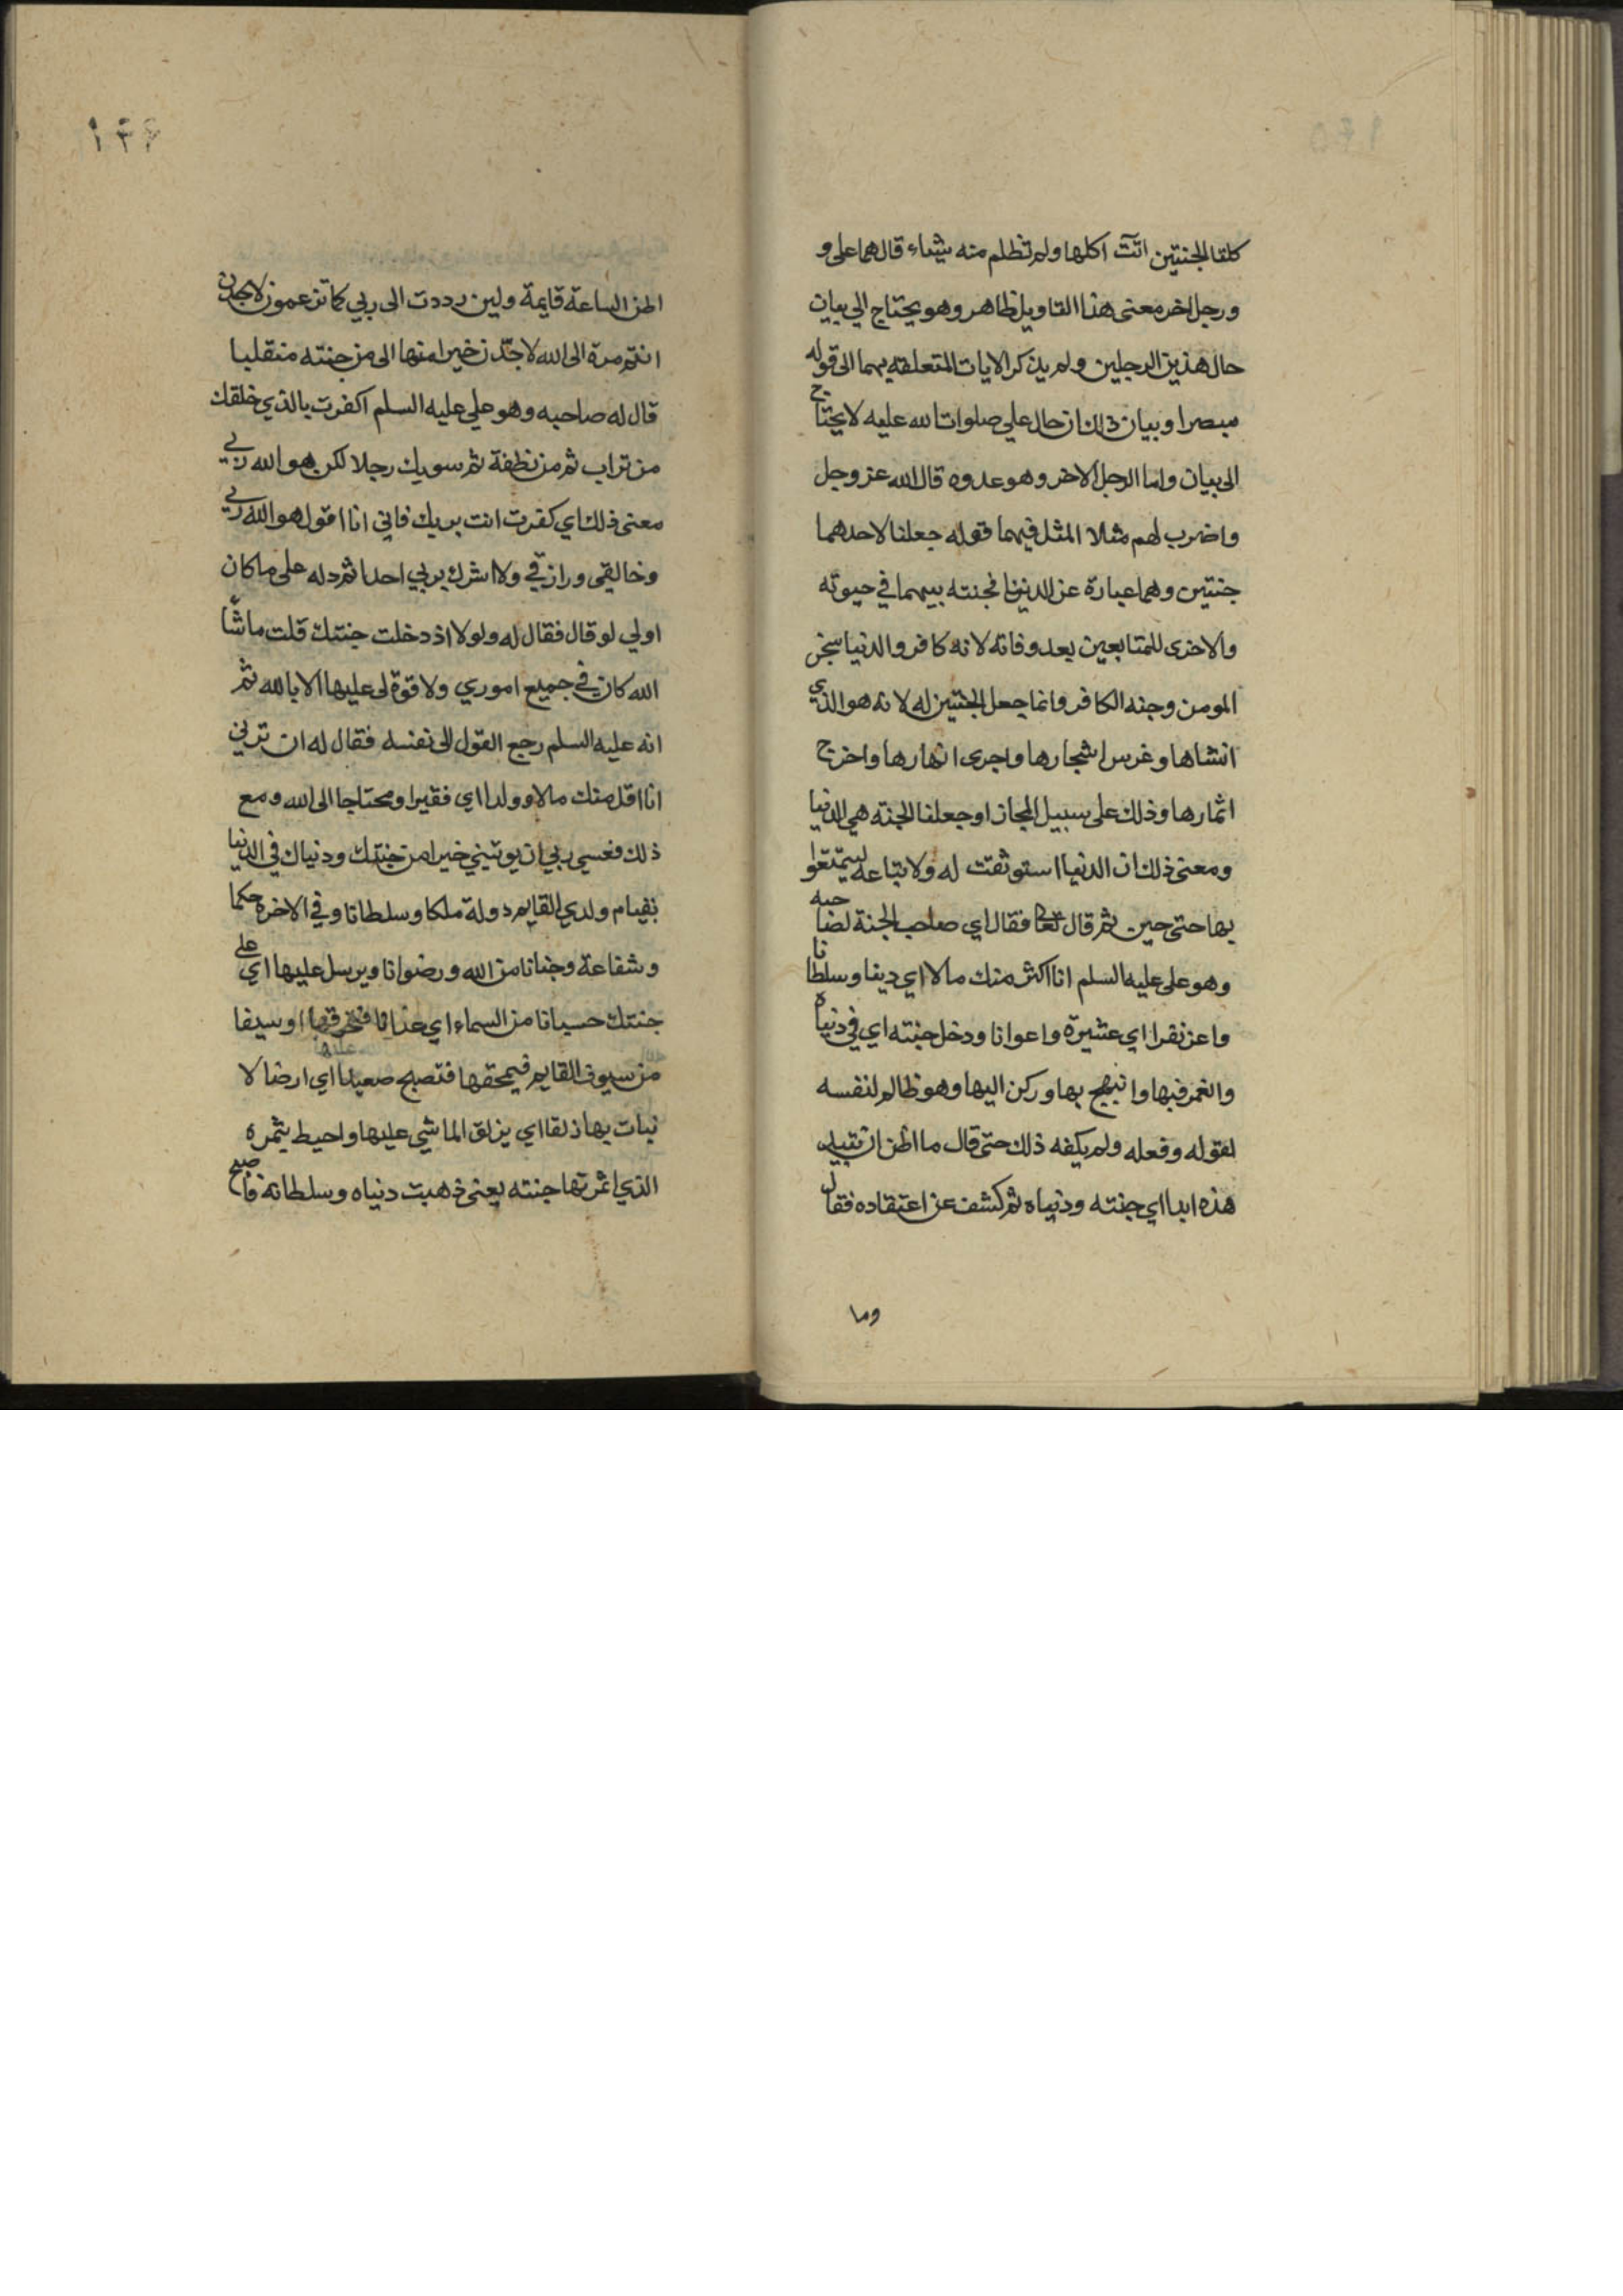 كلتا الجنتين اتت اكلها ولم تظلم منه شياء قال هما على و
ورجل اخر معنى هذا التاويل ظاهر وهو يحتاج الي بيان
حال هذين الرجلين ولم يذكر الايات المتعلقه بهما الى قوله
مبصرا وبيان ذلك ان حال علي صلوات الله عليه لا يحتاج
الى بيان واما الرجل الاخر وهو عدوه قال الله عز وجل
واضرب لهم مثلا المثل فيهما قوله جعلنا لاحدهما
جنتين وهما عبارة عن الدنيا فجنته بينهما في حيوته
والاخرى للمتابعين بعد وفاته لانه كافر والدنيا سجن
المومن وجنه الكافر وانما جعل الجنتين له لانه هو الذي
انشاها وغرس اشجارها واجرى انهارها واخرج
اثمارها وذلك على سبيل المجاز او جعلنا الجنه هي الدنيا
ومعنى ذلك ان الدنيا استوثقت له ولاتباعه ليتمتعوا
بها حتى حين ثم قال تعا فقال اي صاحب الجنة لصاحبه
وهو على عليه السلم انا اكثر منك مالا اي دينا وسلطانا
واعز نفرا اي عشيرة واعوانا ودخل جنته اي في دنياه
وانغمر فيها وابتهج بها وركن اليها وهو ظالم لنفسه
لقوله وفعله ولم يكفه ذلك حتى قال ما اظن ان تبيد
هذه ابدا اي جنته ودنياه ثم كشف عن اعتقاده فقال
وما
١٤٦
اظن الساعة قايمة ولين رددت الى ربي كما تزعمون لاجدن
انتم مرة الى الله لاجدن خيرا منها الى من جنته منقلبا
قال له صاحبه وهو علي عليه السلم اكفرت بالذي خلقك
من تراب ثم من نطفة ثم سويك رجلا لكن هو الله ربي
معنى ذلك اي كفرت انت بربك فاني انا اقول هو الله ربي
وخالقي ورازقي ولا اشرك بربي احدا ثم دله على ما كان
اولي لو قال فقال له ولولا اذ دخلت جنتك قلت ماشا
الله كان في جميع اموري ولا قوة لى عليها الا بالله ثم
انه عليه السلم رجع القول الى نفسه فقال له ان ترني
انا اقل منك مالا وولدا اي فقيرا ومحتاجا الى الله ومع
ذلك فعسى ربي ان يوتيني خيرا من جنتك ودنياك في الدنيا
بقيام ولدي القايم دولة ملكا وسلطانا وفي الاخرة حكما
وشفاعة وجنانا من الله ورضوانا ويرسل عليها اي على
جنتك حسبانا من السماء اي عذابا فتحرقها او سيفا
من سيوف القايم فيمحقها فتصبح صعيدا اي ارضا لا
نبات بها زلقا اي يزلق الماشي عليها واحيط بثمره
الذي اثمرتها جنته يعنى ذهبت دنياه وسلطانه فاصبح